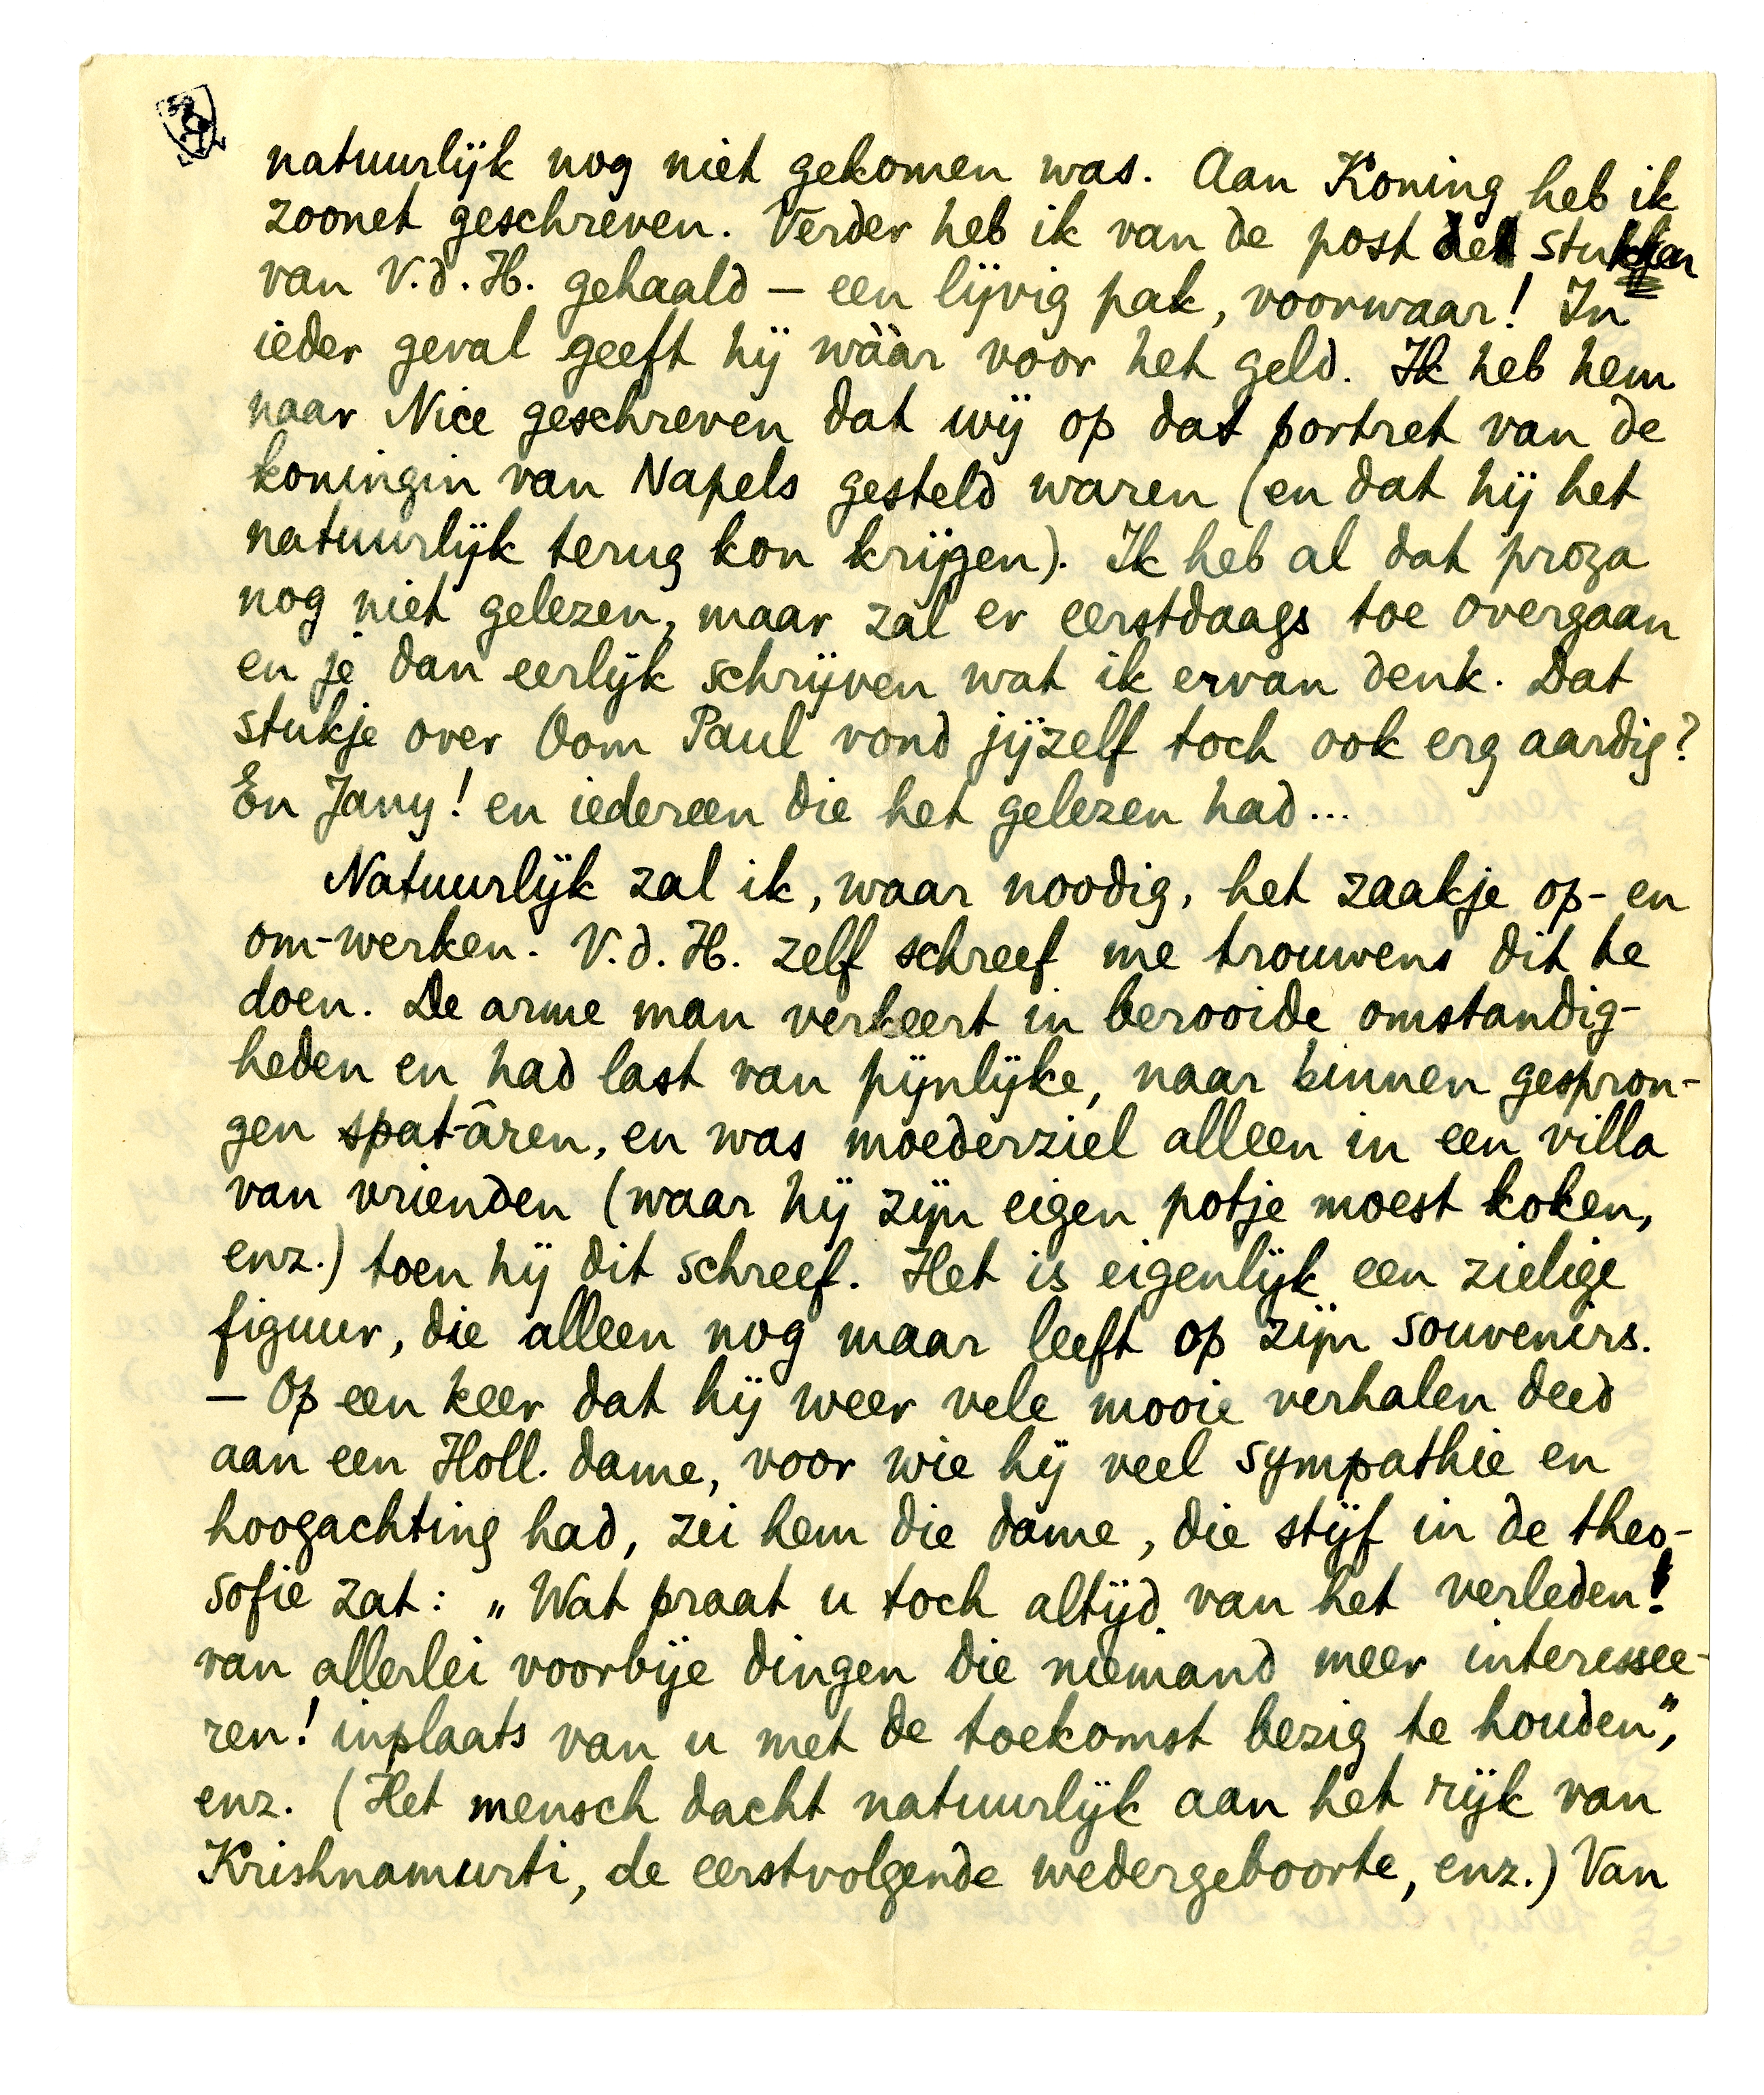 natuurlijk nog niet gekomen was. Aan Koning heb ik
zoonet geschreven. Verder heb ik van de post de stukken
van V.d.H. gehaald – een lijvig pak, voorwaar! In
ieder geval geeft hij wààr voor het geld. Ik heb hem
naar Nice geschreven dat wij op dat portret van de
koningin van Napels gesteld waren (en dat hij het
natuurlijk terug kon krijgen). Ik heb al dat proza
nog niet gelezen, maar zal er eerstdaags toe overgaan
en je dan eerlijk schrijven wat ik ervan denk. Dat
stukje over Oom Paul vond jijzelf toch ook erg aardig?
En Jany! en iedereen die het gelezen had...
Natuurlijk zal ik, waar noodig, het zaakje op- en
om-werken. V.d.H. zelf schreef me trouwens dit te
doen. De arme man verkeert in berooide omstandig-
heden en had last van pijnlijke, naar binnen gespron-
gen spat-âren, en was moederziel alleen in een villa
van vrienden (waar hij zijn eigen potje moest koken,
enz.) toen hij dit schreef. Het is eigenlijk een zielige
figuur, die alleen nog maar leeft op zijn souvenirs.
– Op een keer dat hij weer vele mooie verhalen deed
aan een Holl. dame, voor wie hij veel sympathie en
hoogachting had, zei hem die dame, die stijf in de theo-
sofie zat: „Wat praat u toch altijd van het verleden!
van allerlei voorbije dingen die niemand meer interessee-
ren! inplaats van u met de toekomst bezig te houden",
enz. (Het mensch dacht natuurlijk aan het rijk van
Krishnamurti, de eerstvolgende wedergeboorte, enz.) Van